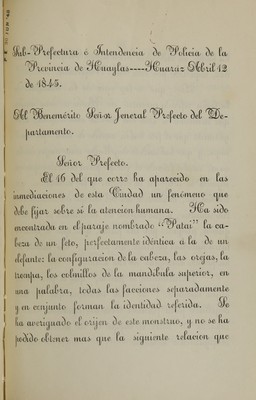 Sub-Prefectura ó Intendencia de Policia de la
Provincia de Huaylas----Huaraz Abril 12
de 1845.
Al Benemérito Señor Jeneral Prefecto del De-
partamento.
Señor Prefecto.
El 16 del que corre ha aparecido en las
inmediaciones de esta Ciudad un fenómeno que
debe fijar sobre sí la atencion humana. Ha sido
encontrada en el paraje nombrado "Patai" la ca-
beza de un feto, perfectamente idéntica a la de un
elefante: la configuracion de la cabeza, las orejas, la
trompa, los colmillos de la mandibula superior, en
una palabra, todas las facciones separadamente
y en conjunto forman la identidad referida. Se
ha averiguado el orijen de este monstruo, y no se ha
podido obtener mas que la siguiente relacion que